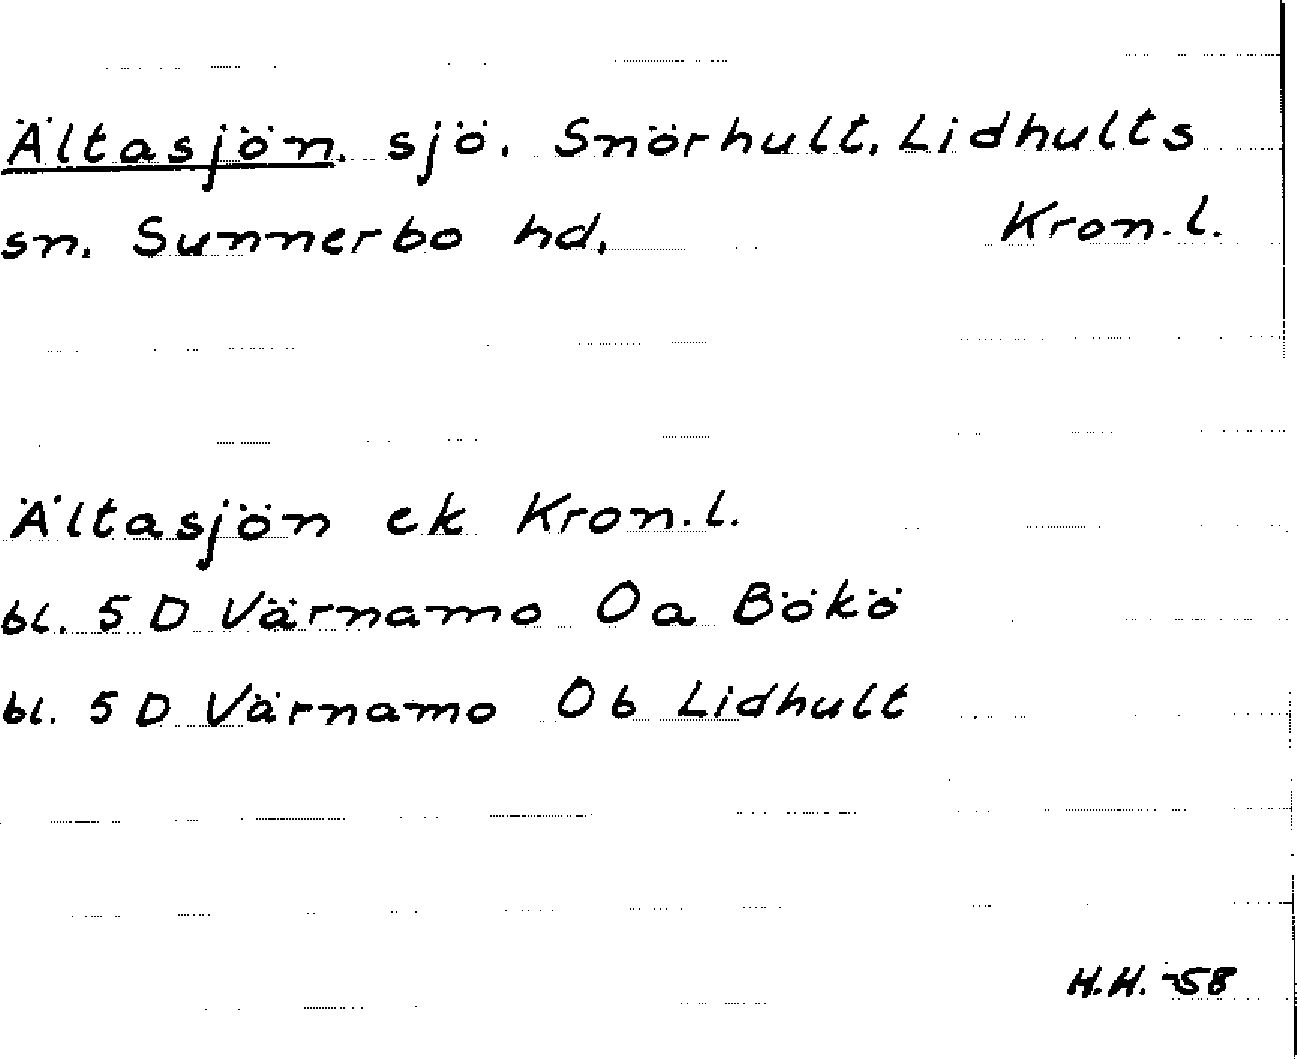 Ältasjön. sjö. Snörhult. Lidhults
sn. Sunnerbo hd. Kron. l.
Ältasjön ek Kron. l.
bl. 5 D Värnamo 0 a Bökö
bl. 5 D Värnamo 0 b Lidhult
H.H. -58